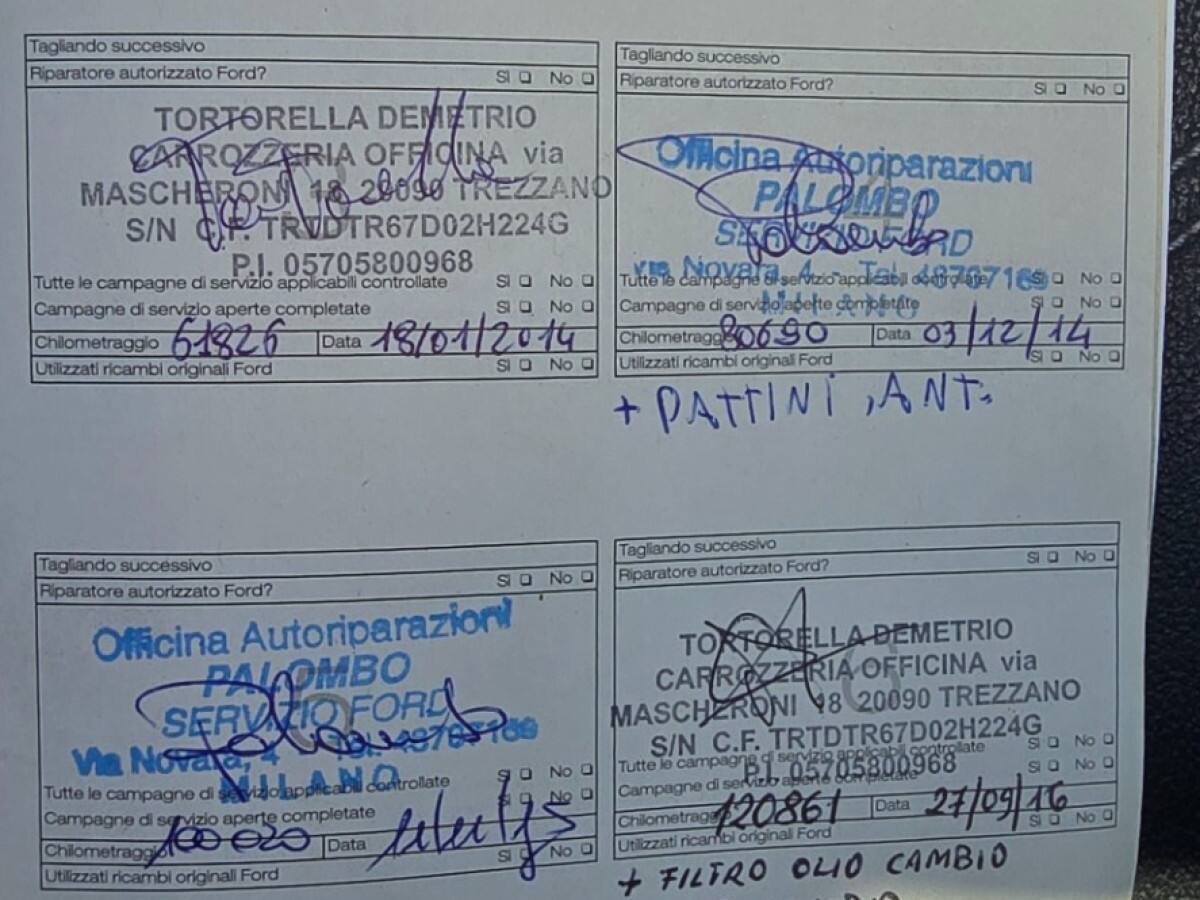 Tagliando successivo
Riparatore autorizzato Ford? Sì No
TORTORELLA DEMETRIO
CARROZZERIA OFFICINA via
MASCHERONI 18 20090 TREZZANO
S/N C.F. TRTDTR67D02H224G
P.I. 05705800968
Tutte le campagne di servizio applicabili controllate Sì No
Campagne di servizio aperte completate Sì No
Chilometraggio 61826 Data 18/01/2014
Utilizzati ricambi originali Ford Sì No
Tagliando successivo
Riparatore autorizzato Ford? Sì No
Officina Autoriparazioni
PALOMBO
SERVIZIO FORD
via Novara, 4 - Tel.
Tutte le campagne di servizio applicabili controllate Sì No
MILANO
Campagne di servizio aperte completate Sì No
Chilometraggio 80690 Data 03/12/14
Utilizzati ricambi originali Ford Sì No
+ PATTINI, ANT.
Tagliando successivo
Riparatore autorizzato Ford? Sì No
Officina Autoriparazioni
PALOMBO
SERVIZIO FORD
Via Novara, 4
MILANO
Tutte le campagne di servizio applicabili controllate Sì No
Campagne di servizio aperte completate Sì No
Chilometraggio 100020 Data
Utilizzati ricambi originali Ford Sì No
Tagliando successivo
Riparatore autorizzato Ford? Sì No
TORTORELLA DEMETRIO
CARROZZERIA OFFICINA via
MASCHERONI 18 20090 TREZZANO
S/N C.F. TRTDTR67D02H224G
Tutte le campagne di servizio applicabili controllate Sì No
P.I. 05705800968
Campagne di servizio aperte completate Sì No
Chilometraggio 120861 Data 27/09/16
Utilizzati ricambi originali Ford Sì No
+ FILTRO OLIO CAMBIO